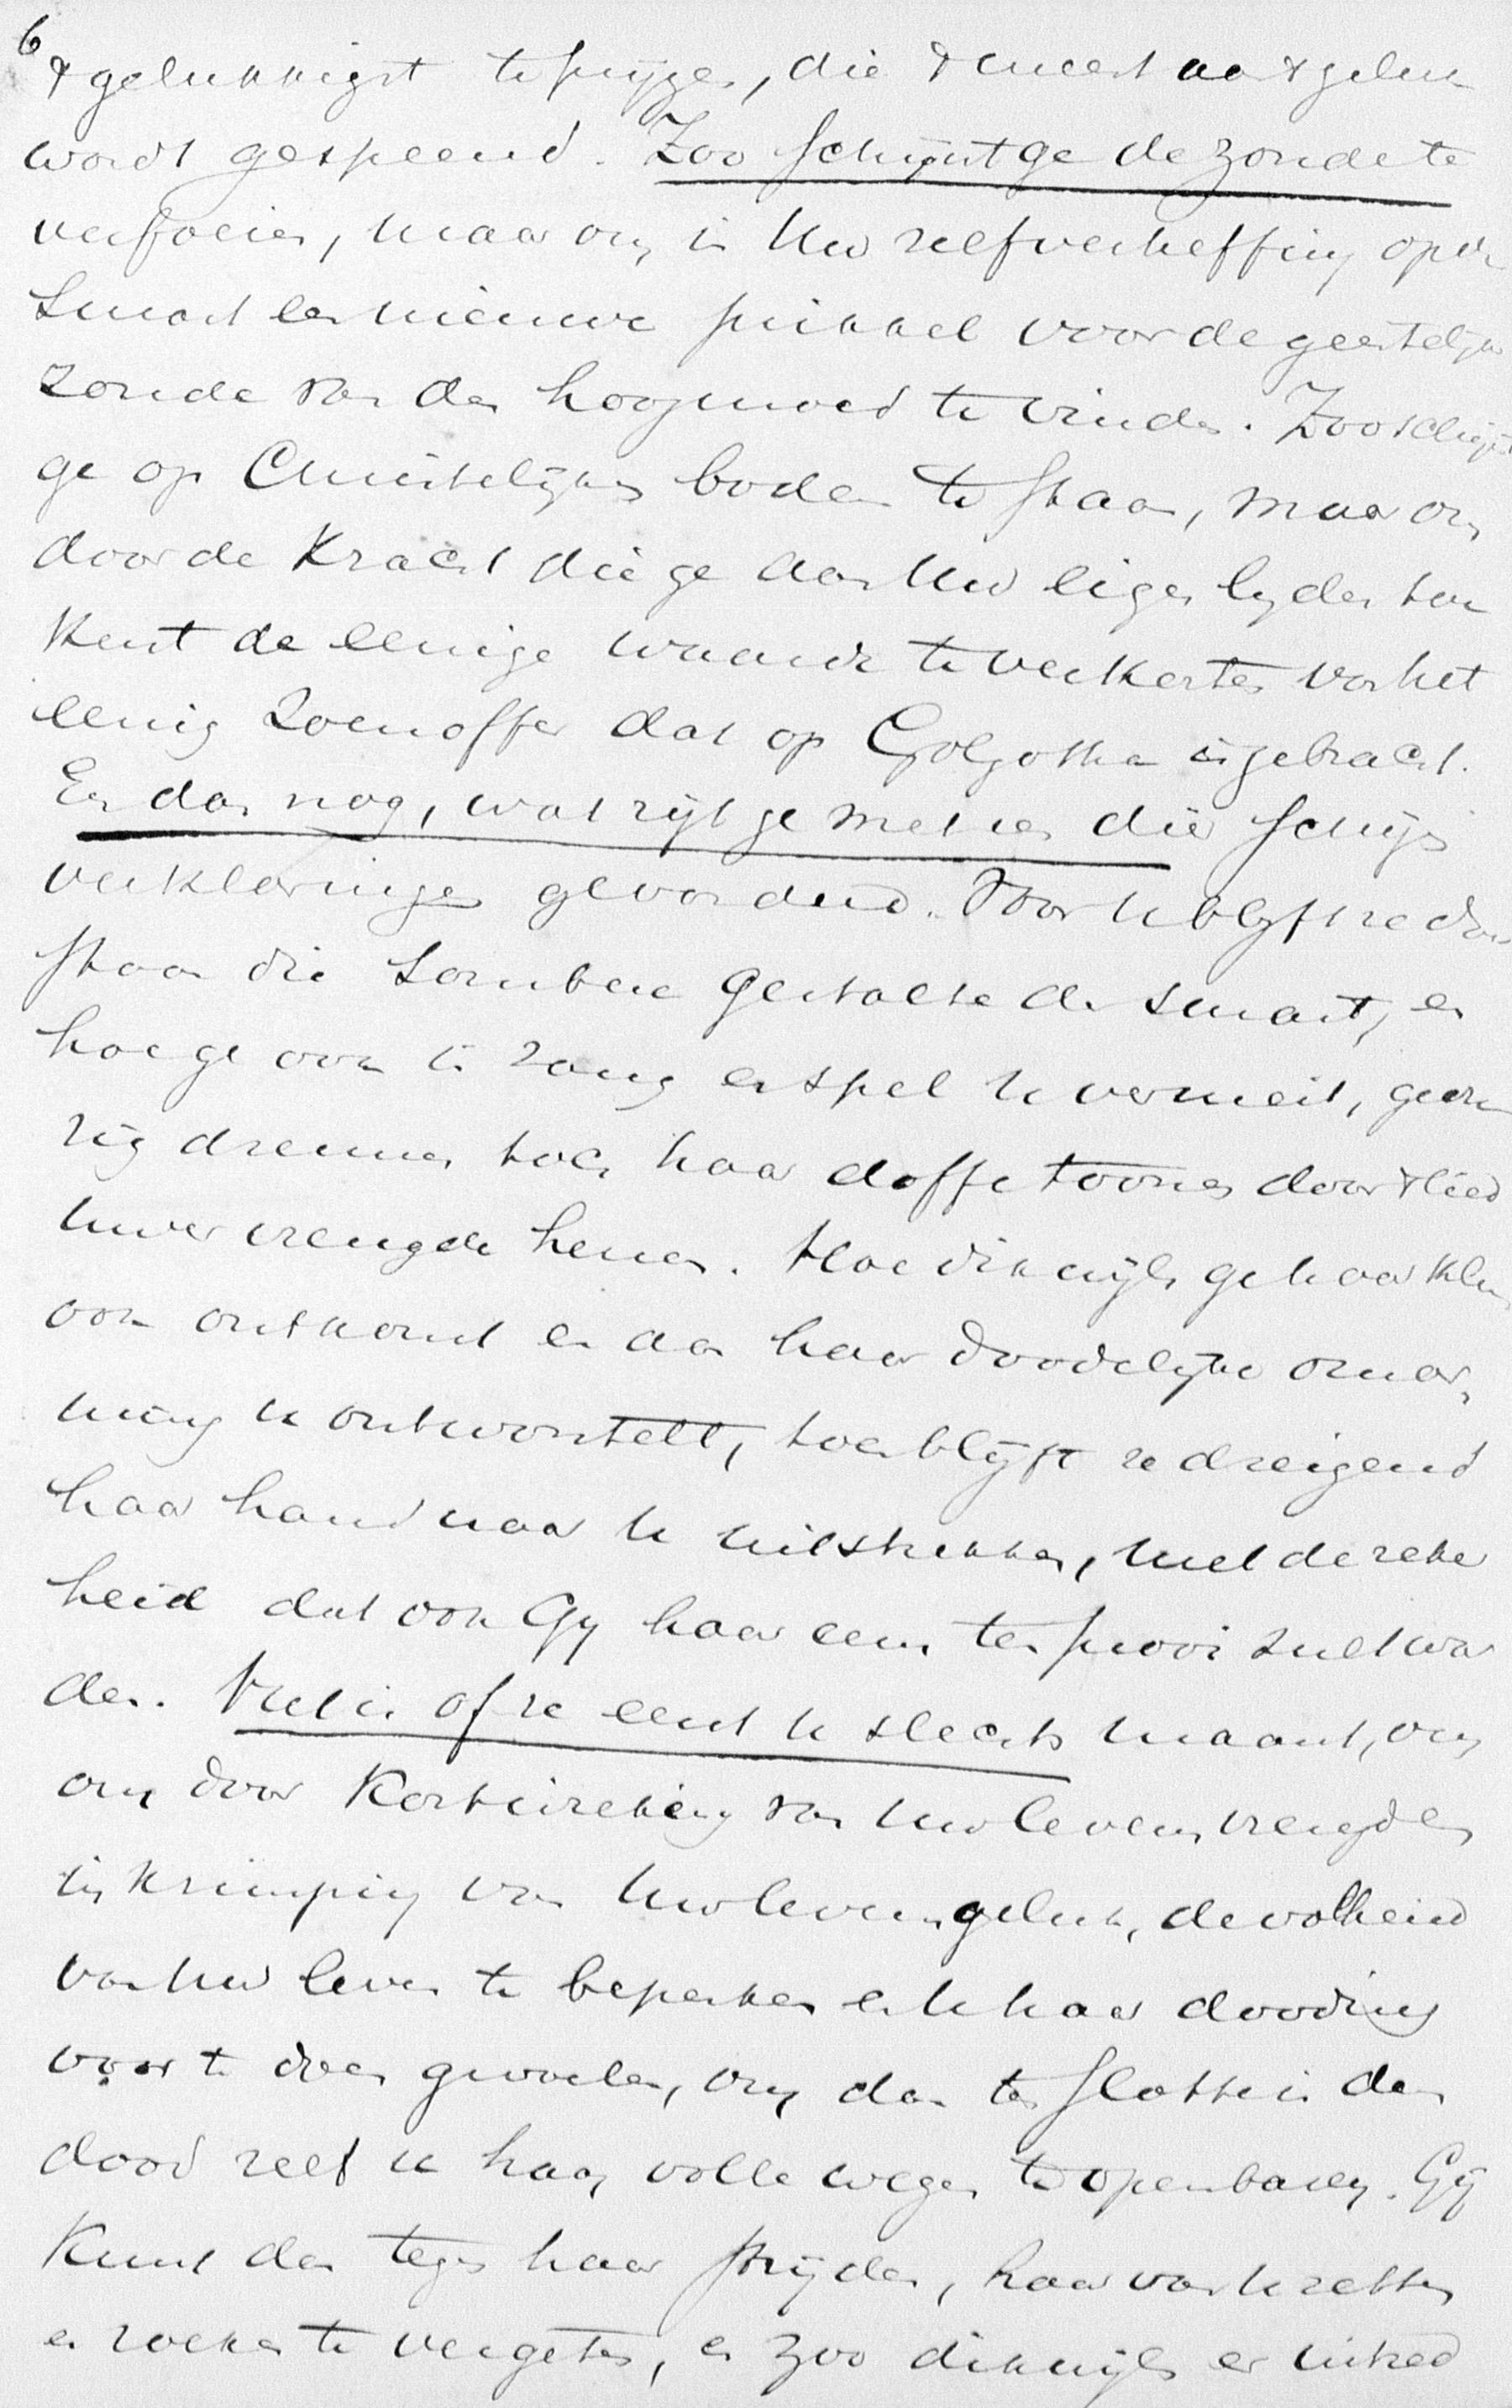 6
't gelukkigst te prijzen, die 't meest aan 't geluk
wordt gespeend. Zoo schijnt ge de zonde te
verfoeien, maar om in Uw zelfverheffing op de
smart een nieuwe prikkel voor de geestelijke
zonde van den hoogmoed te vinden. Zoo schijnt
ge op Christelijken bodem te staan, maar om
door de Kracht die ge aan Uw eigen lijden toe
Kent de eenige waarde te verkorten van het
eenig Zoenoffer dat op Golgotha is gebracht.
En dan nog, wat zijt ge met een die schijn
verklaringen gevorderd. Voor U blijft ze dan
staan die sombere gestalte der smart, en
hoe ge ook in zang en spel U vermeit, gedu
rig dreunen toch haar doffe toonen door 't lied
Uwer vreugde henen. Hoe dikwijls ge haar klem
ook ontkomt en aan haar doodelijke omar,
ming U ontworstelt, toch blijft ze dreigend
haar hand naar U uitstrekken, met de zeker
heid dat ook Gy haar eens ten prooi zult wor
den. Het is of ze eerst U slechts maant, om
om door Kortwieking van Uw levensvreugde en
inkrimping van Uw levensgeluk, de volheid
van Uw leven te beperken en U haar dooding
voor te doen gevoelen, om dan ten slotte in den
dood zelf U haar volle wezen te openbaren. Gij
Kunt dan tegen haar strijden, haar van U zetten
en zoeken te vergeten, en zoo dikwijls er uitred